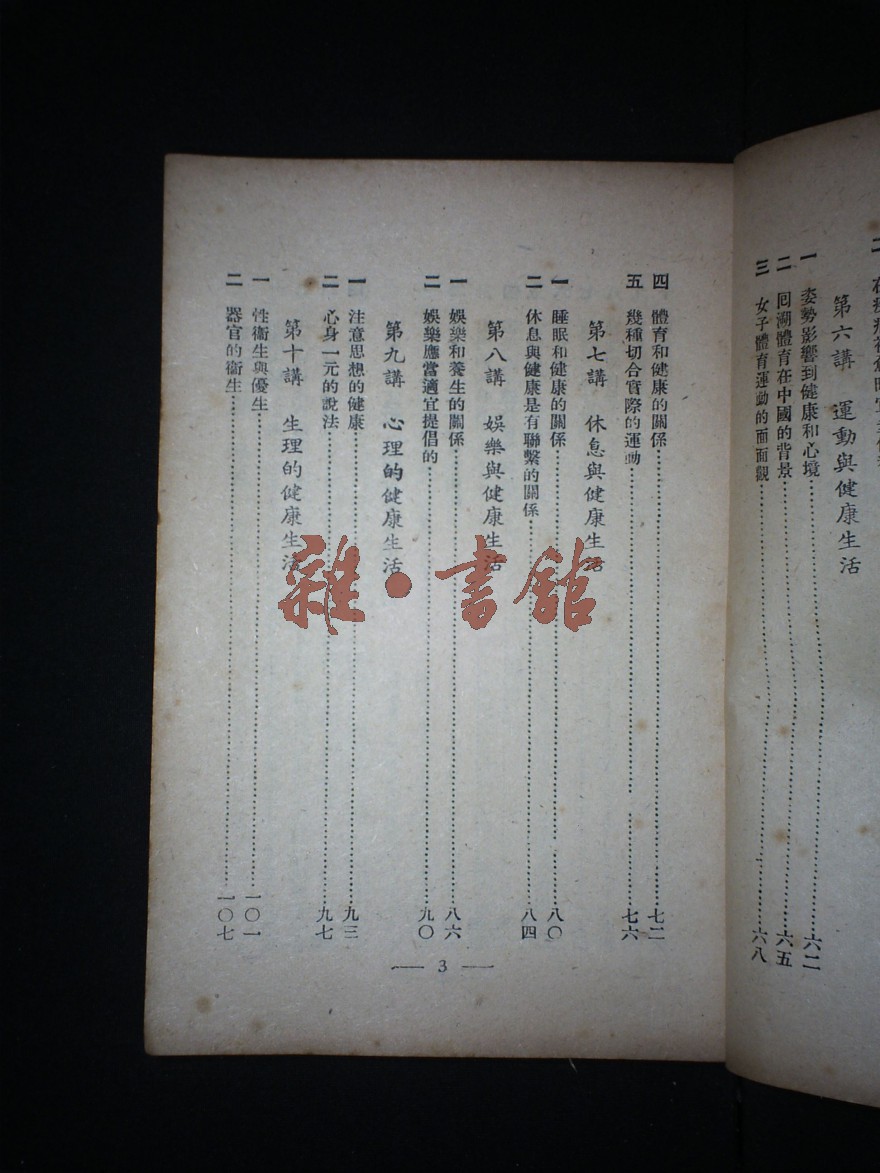 第六講　運動與健康生活
一　姿勢影響到健康和心境……六二
二　囘溯體育在中國的背景……六五
三　女子體育運動的面面觀……六八
四　體育和健康的關係……七二
五　幾種切合實際的運動……七六
第七講　休息與健康生活
一　睡眠和健康的關係……八〇
二　休息與健康是有聯繫的關係……八四
第八講　娛樂與健康生活
一　娛樂和養生的關係……八六
二　娛樂應當適宜提倡的……九〇
第九講　心理的健康生活
一　注意思想的健康……九三
二　心身一元的說法……九七
第十講　生理的健康生活
一　性衞生與優生……一〇一
二　器官的衞生……一〇七
— 3 —
雜·書館